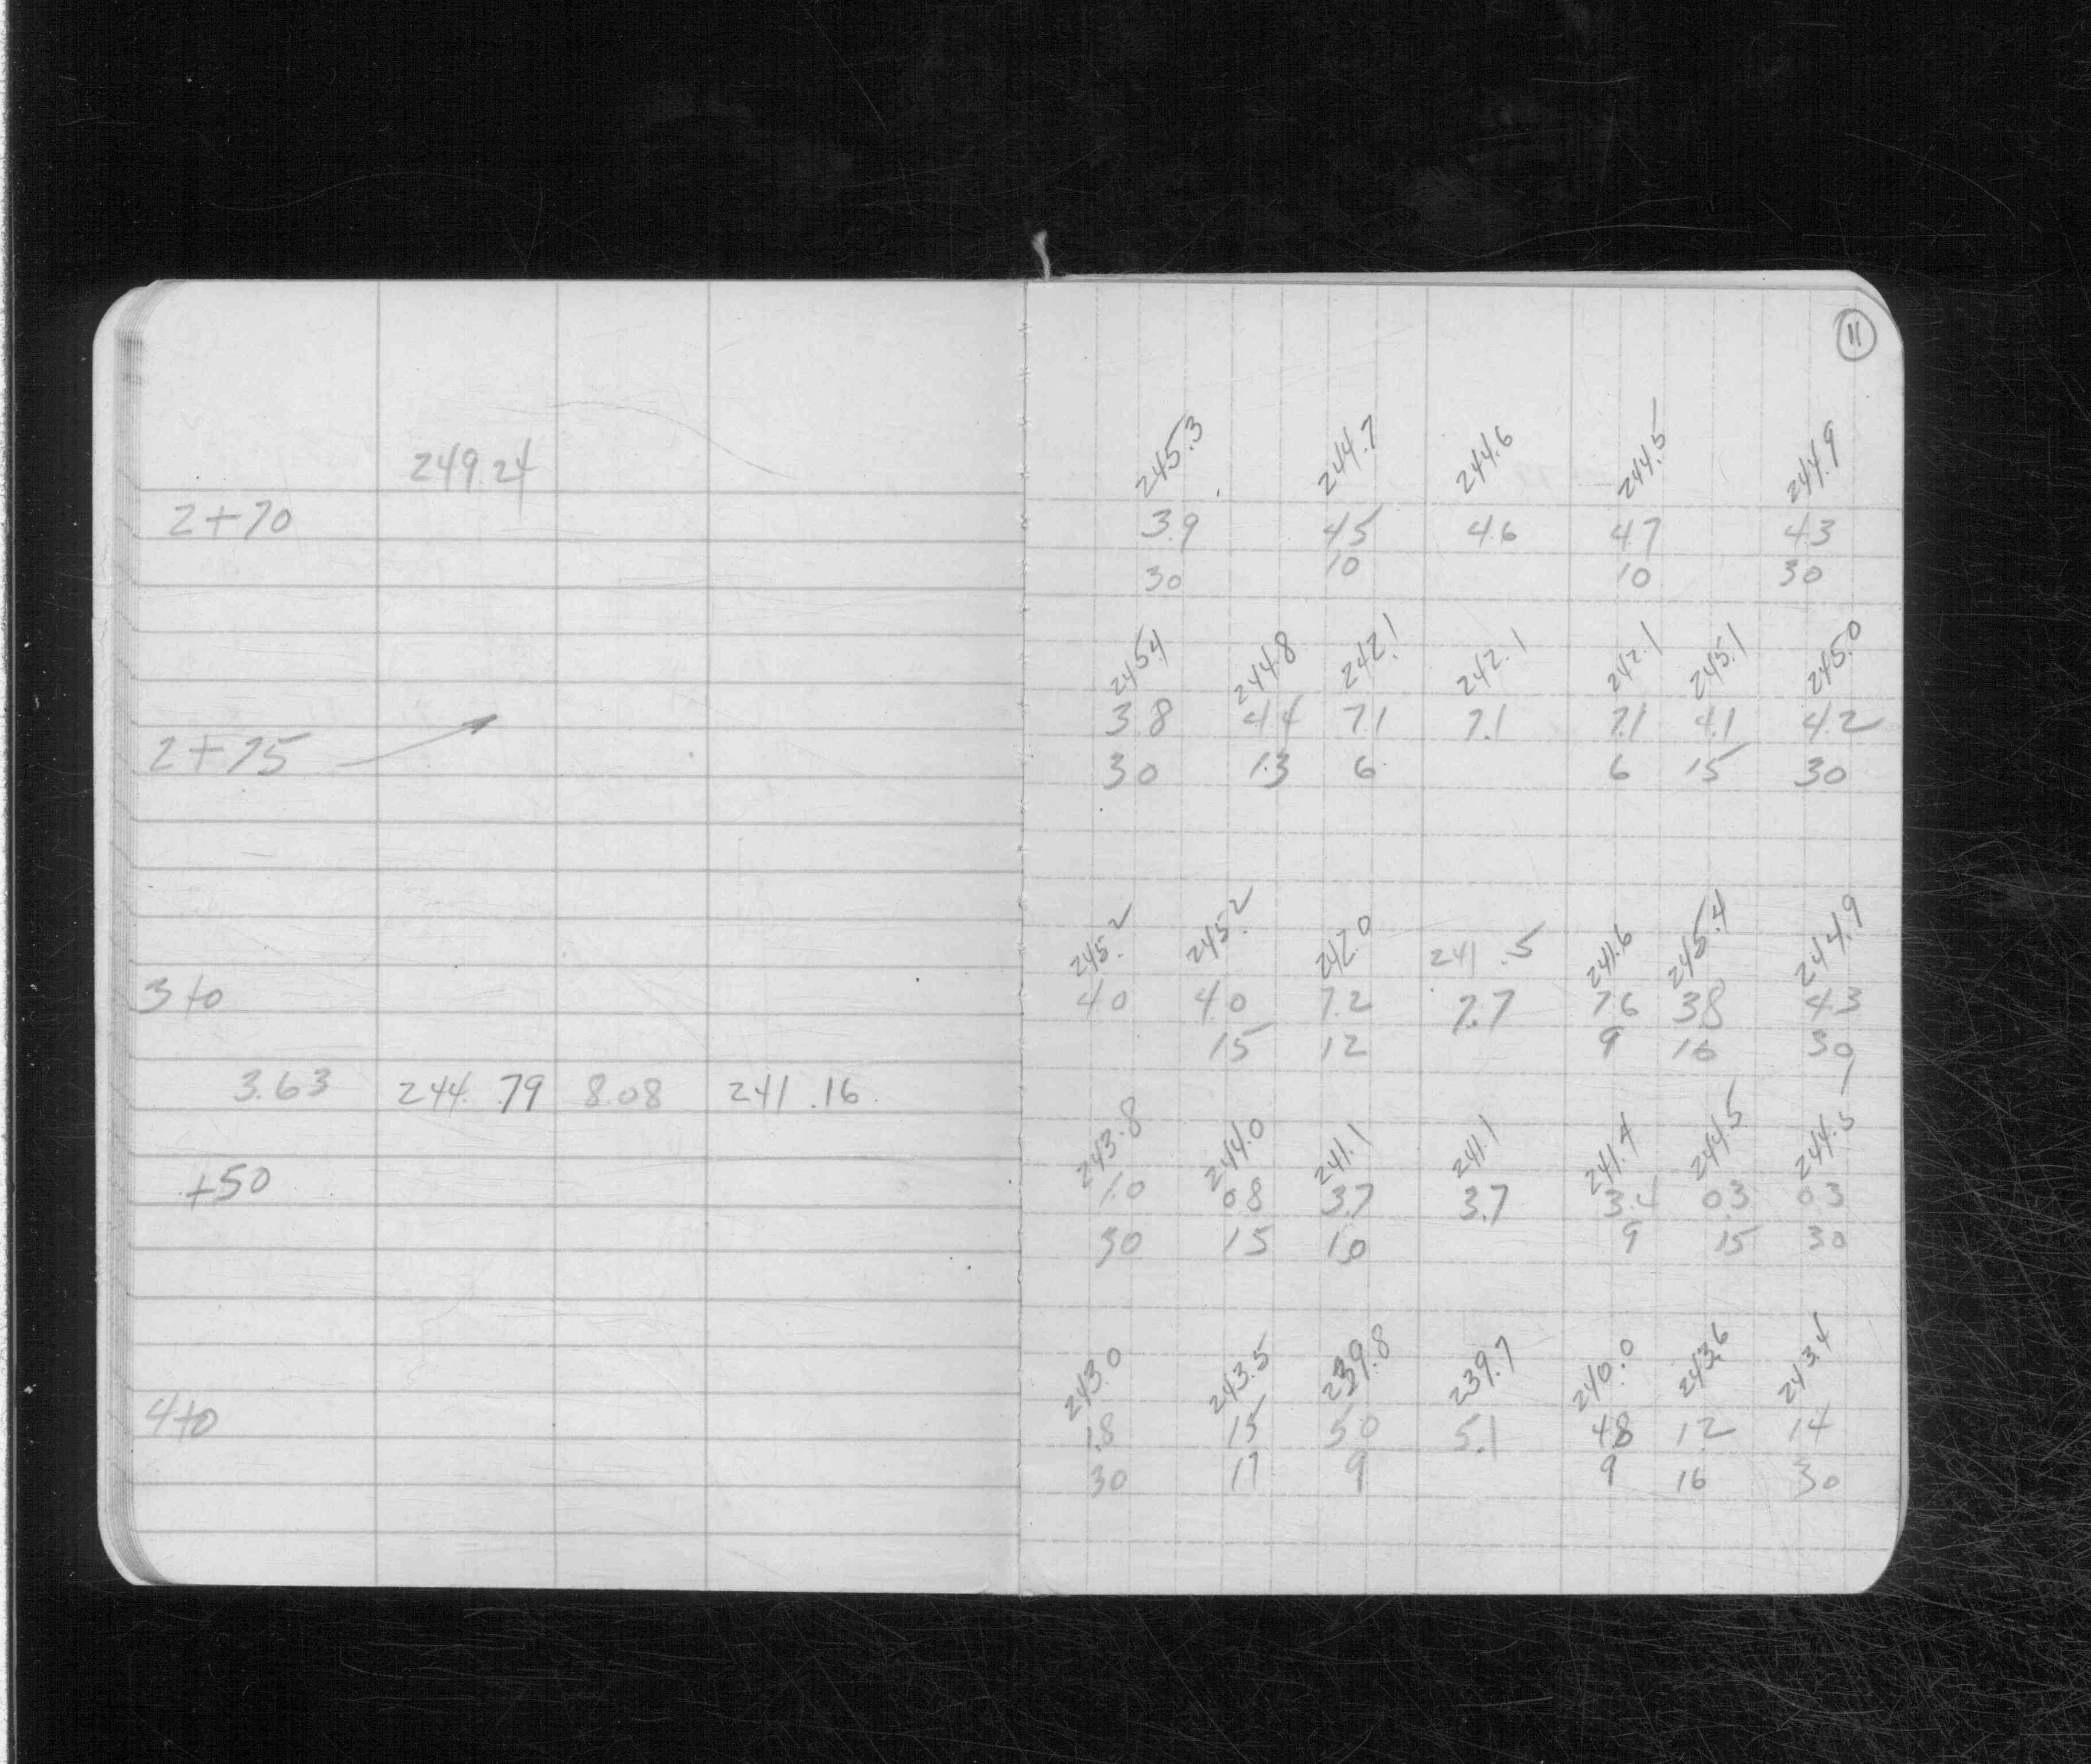 11
249.24
245.3 244.7 244.6 244.5 244.9
2+70 3.9 4.5 4.6 4.7 4.3
30 10 10 30
245.4 244.8 242.1 242.1 242.1 245.1 245.0
3.8 4.4 7.1 7.1 7.1 4.1 4.2
2+75 30 13 6 6 15 30
245.2 245.2 242.0 241.5 241.6 245.4 244.9
3+0 4.0 4.0 7.2 7.7 7.6 3.8 4.3
15 12 9 16 30
3.63 244.79 8.08 241.16
243.8 244.0 241.1 241.1 241.4 244.5 244.5
+50 1.0 0.8 3.7 3.7 3.4 0.3 0.3
30 15 10 9 15 30
243.0 243.5 239.8 239.7 240.0 243.6 243.4
4+0 1.8 1.5 5.0 5.1 4.8 1.2 1.4
30 17 9 9 16 30